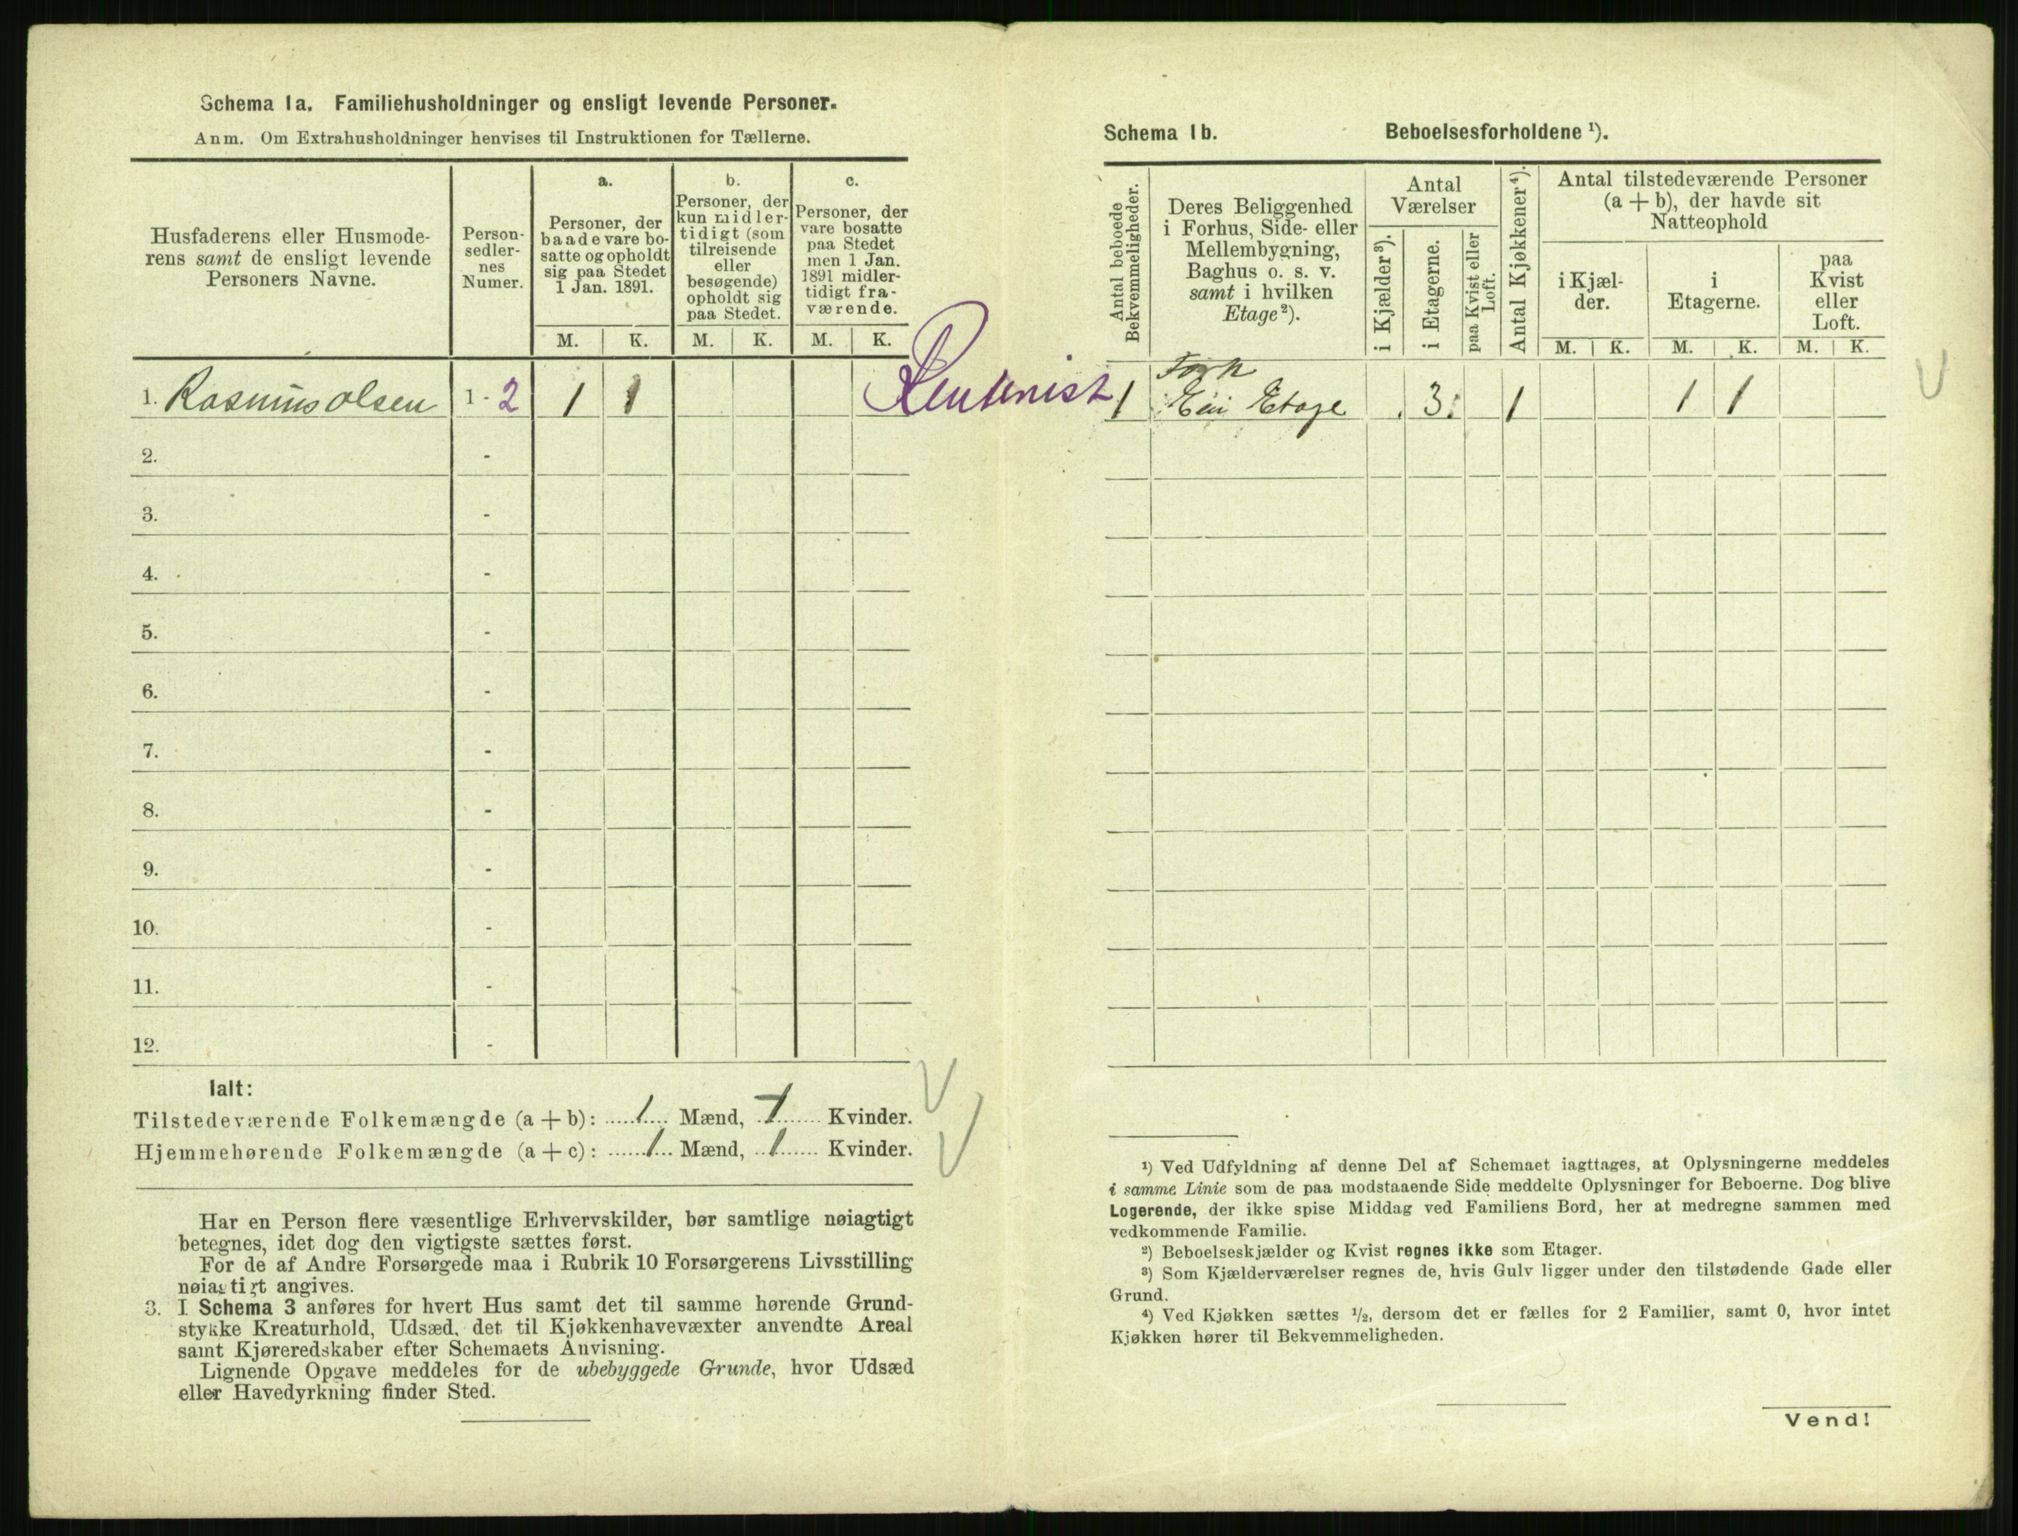 Schema 1a. Familiehusholdninger og ensligt levende Personer.
Anm. Om Extrahusholdninger henvises til Instruktionen for Tællerne.
Husfaderens eller Husmode-
rens samt de ensligt levende
Personers Navne.
Person-
sedler-
nes
Numer.
a.
Personer, der
baade vare bo-
satte og opholdt
sig paa Stedet
1 Jan. 1891.
b.
Personer, der
kun midler-
tidigt (som
tilreisende
eller
besøgende)
opholdt sig
paa Stedet.
c.
Personer, der
vare bosatte
paa Stedet
men 1 Jan.
1891 midler-
tidigt fra-
værende.
M. K. M. K. M. K.
1. Rasmus Olsen 1 - 2 1 1 Rentenist
2. -
3. -
4. -
5. -
6. -
7. -
8. -
9. -
10. -
11. -
12. -
Ialt:
Tilstedeværende Folkemængde (a + b): 1 Mænd, 1 Kvinder.
Hjemmehørende Folkemængde (a + c): 1 Mænd, 1 Kvinder.
Har en Person flere væsentlige Erhvervskilder, bør samtlige nøiagtigt
betegnes, idet dog den vigtigste sættes først.
For de af Andre Forsørgede maa i Rubrik 10 Forsørgerens Livsstilling
nøiagtigt angives.
3. I Schema 3 anføres for hvert Hus samt det til samme hørende Grund-
stykke Kreaturhold, Udsæd, det til Kjøkkenhavevæxter anvendte Areal
samt Kjøreredskaber efter Schemaets Anvisning.
Lignende Opgave meddeles for de ubebyggede Grunde, hvor Udsæd
eller Havedyrkning finder Sted.
Schema 1b. Beboelsesforholdene ¹).
Antal beboede
Bekvemmeligheder.
Deres Beliggenhed
i Forhus, Side- eller
Mellembygning,
Baghus o. s. v.
samt i hvilken
Etage²).
Antal
Værelser
i Kjælder³).
i Etagerne.
paa Kvist eller
Loft.
Antal Kjøkkener⁴).
Antal tilstedeværende Personer
(a + b), der havde sit
Natteophold
i Kjæl-
der.
i
Etagerne.
paa
Kvist
eller
Loft.
M. K. M. K. M. K.
Forh
1 Ein Etage 3 1 1 1
¹) Ved Udfyldning af denne Del af Schemaet iagttages, at Oplysningerne meddeles
i samme Linie som de paa modstaaende Side meddelte Oplysninger for Beboerne. Dog blive
Logerende, der ikke spise Middag ved Familiens Bord, her at medregne sammen med
vedkommende Familie.
²) Beboelseskjælder og Kvist regnes ikke som Etager.
³) Som Kjælderværelser regnes de, hvis Gulv ligger under den tilstødende Gade eller
Grund.
⁴) Ved Kjøkken sættes ½, dersom det er fælles for 2 Familier, samt 0, hvor intet
Kjøkken hører til Bekvemmeligheden.
Vend!